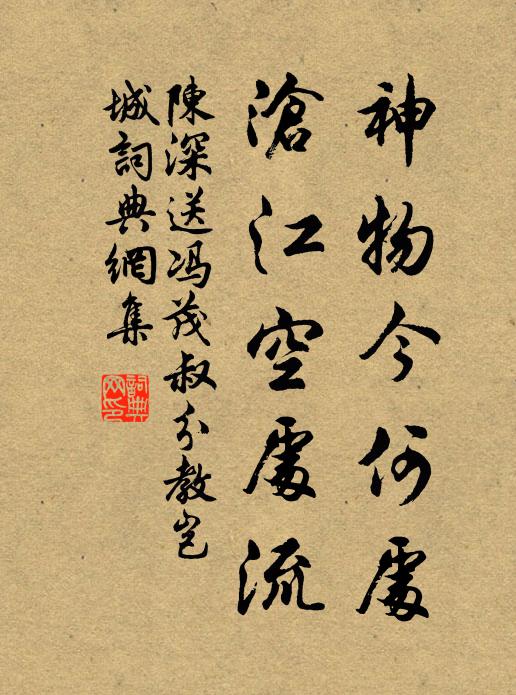 神物今何處
滄江空處流
陳深送馮茂叔分教豐
城詞典網集
詞典
网印